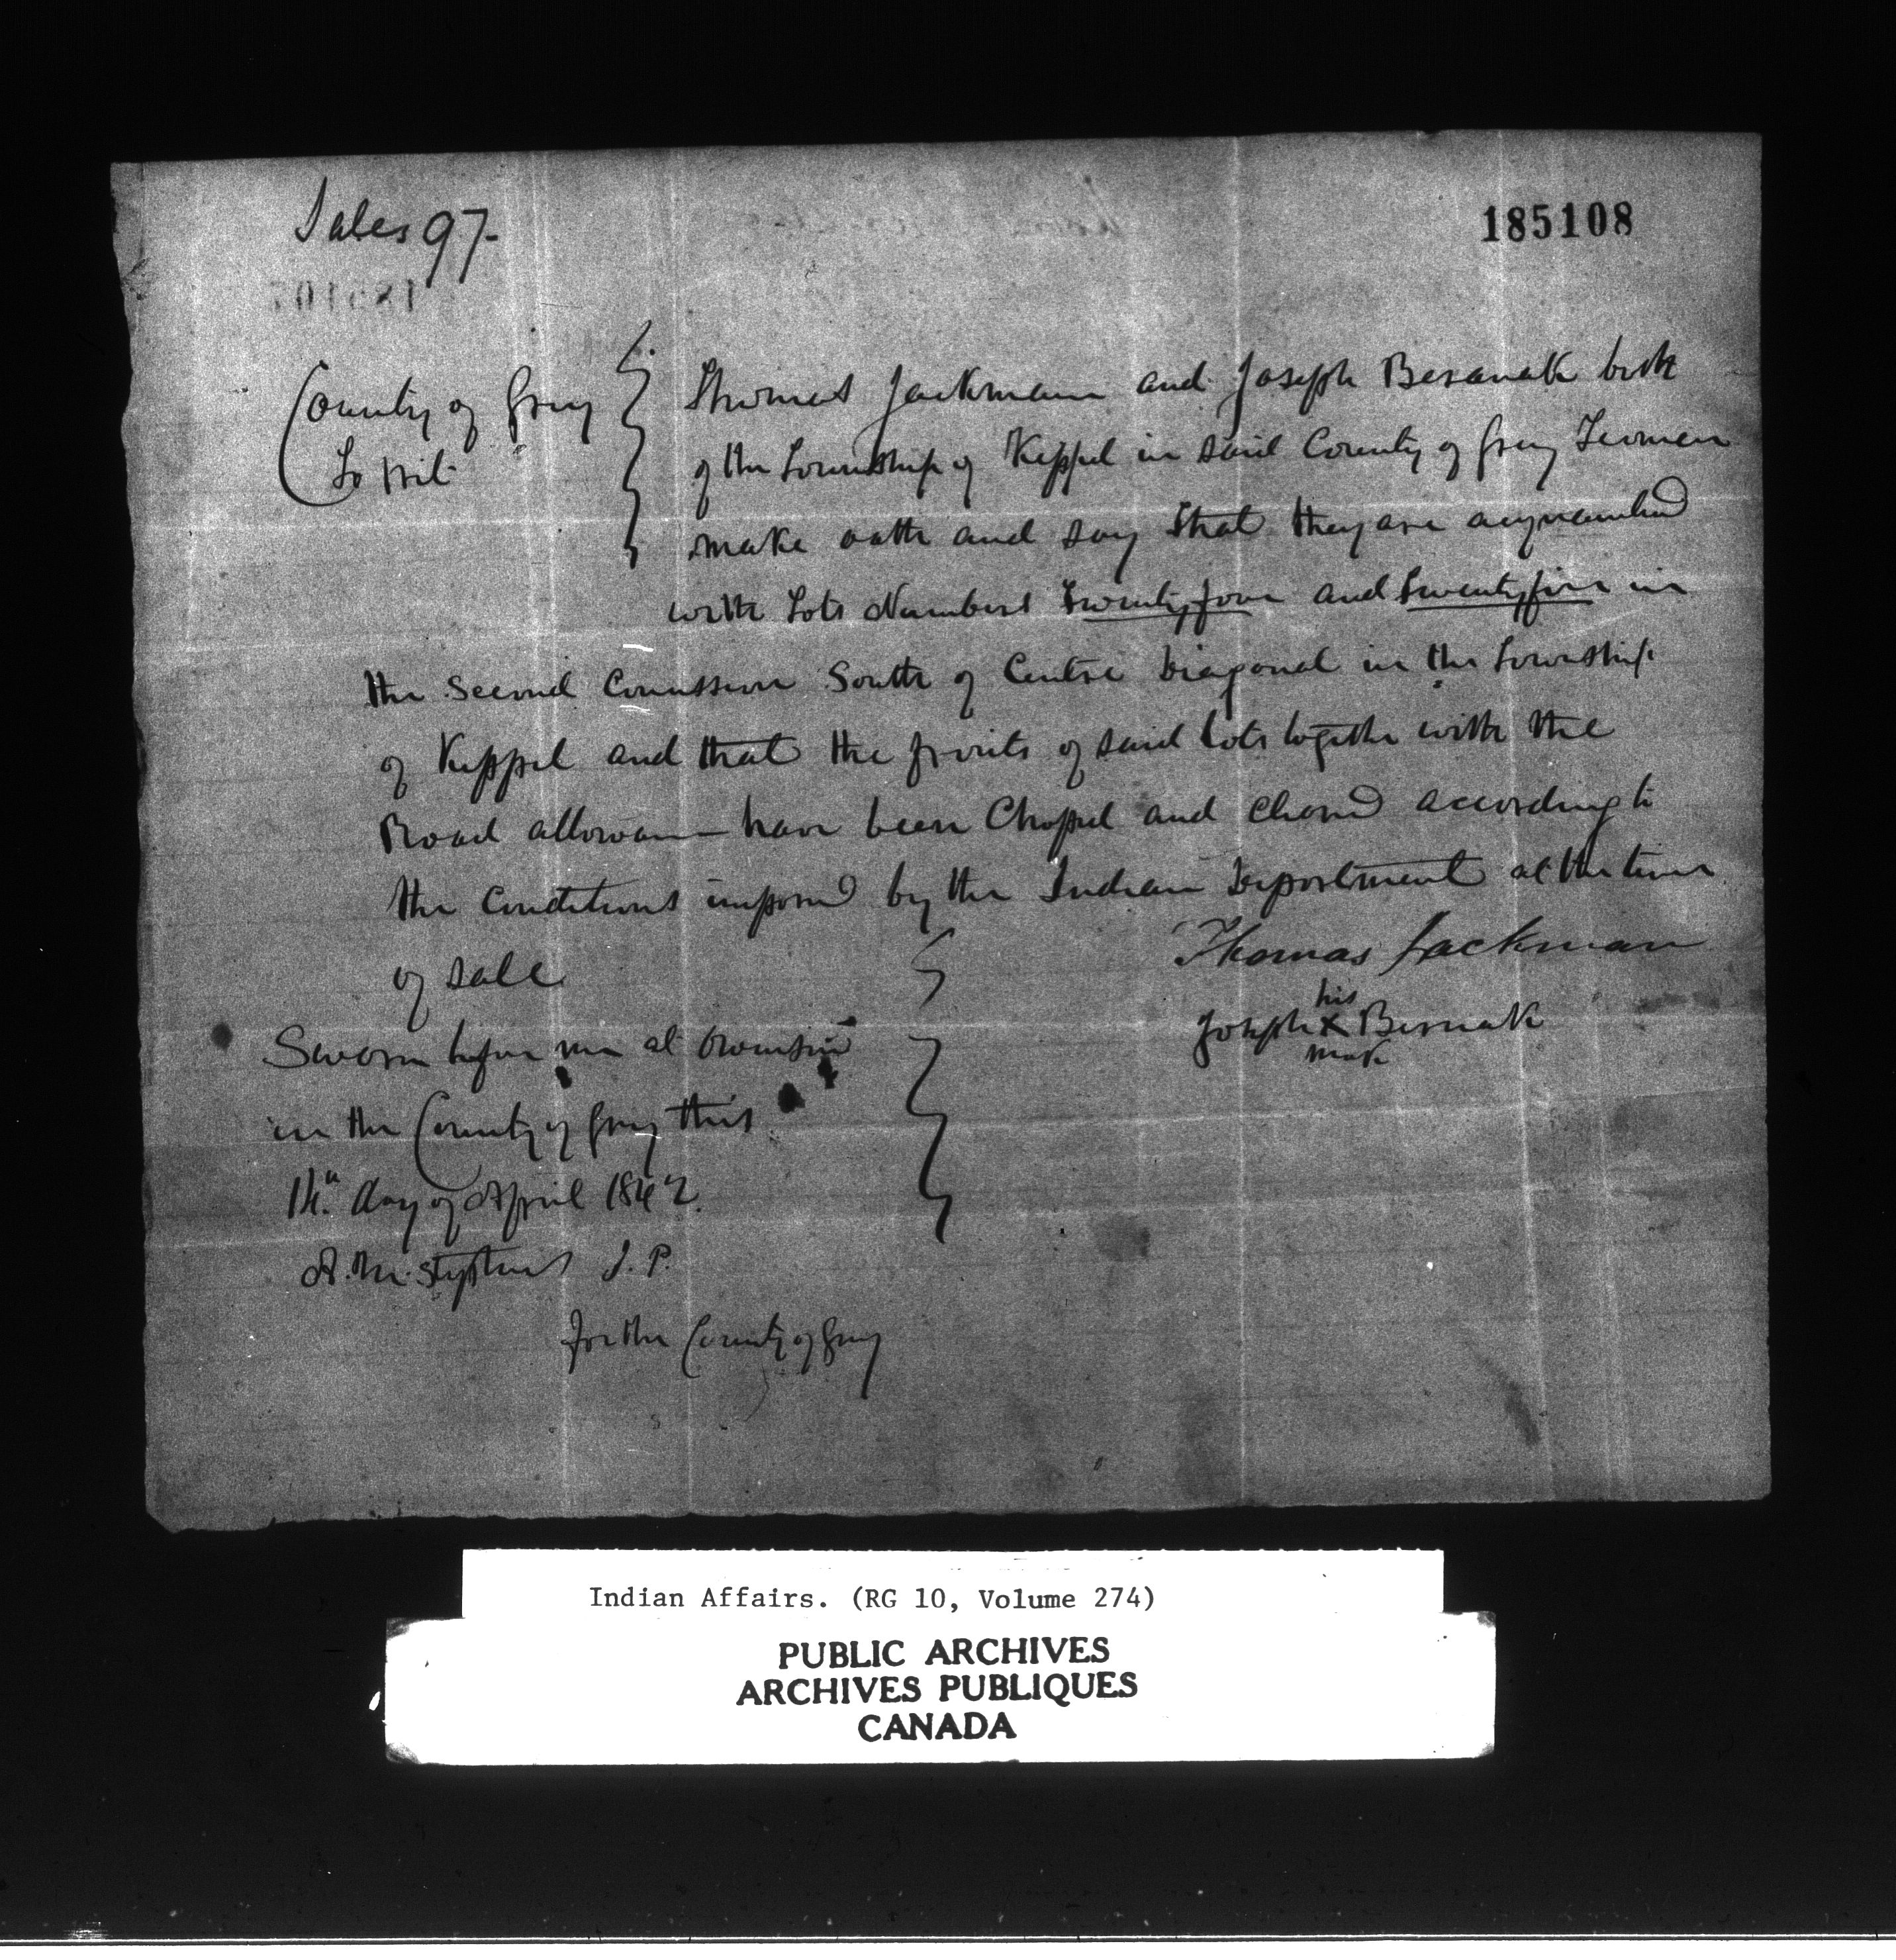 Sales 97-
185108
County of Grey
To Wit
Thomas Jackman and Joseph Besanak both
of the Township of Keppel in said County of Grey Yeomen
make oath and say that they are acquainted
with Lots Numbers Twenty four and Twenty five in
the Second Concession South of Centre Diagonal in the Township
of Keppel and that the fronts of said lots together with the
Road allowance have been Chopped and cleared according to
the Conditions imposed by the Indian Department at the time
of sale
Thomas Jackman
his
Joseph X Besnak
mark
Sworn before me at
in the County of Grey this
14th day of April 186
A. M. Stephens J. P.
For the County of Grey
Indian Affairs. (RG 10, Volume 274)
PUBLIC ARCHIVES
ARCHIVES PUBLIQUES
CANADA